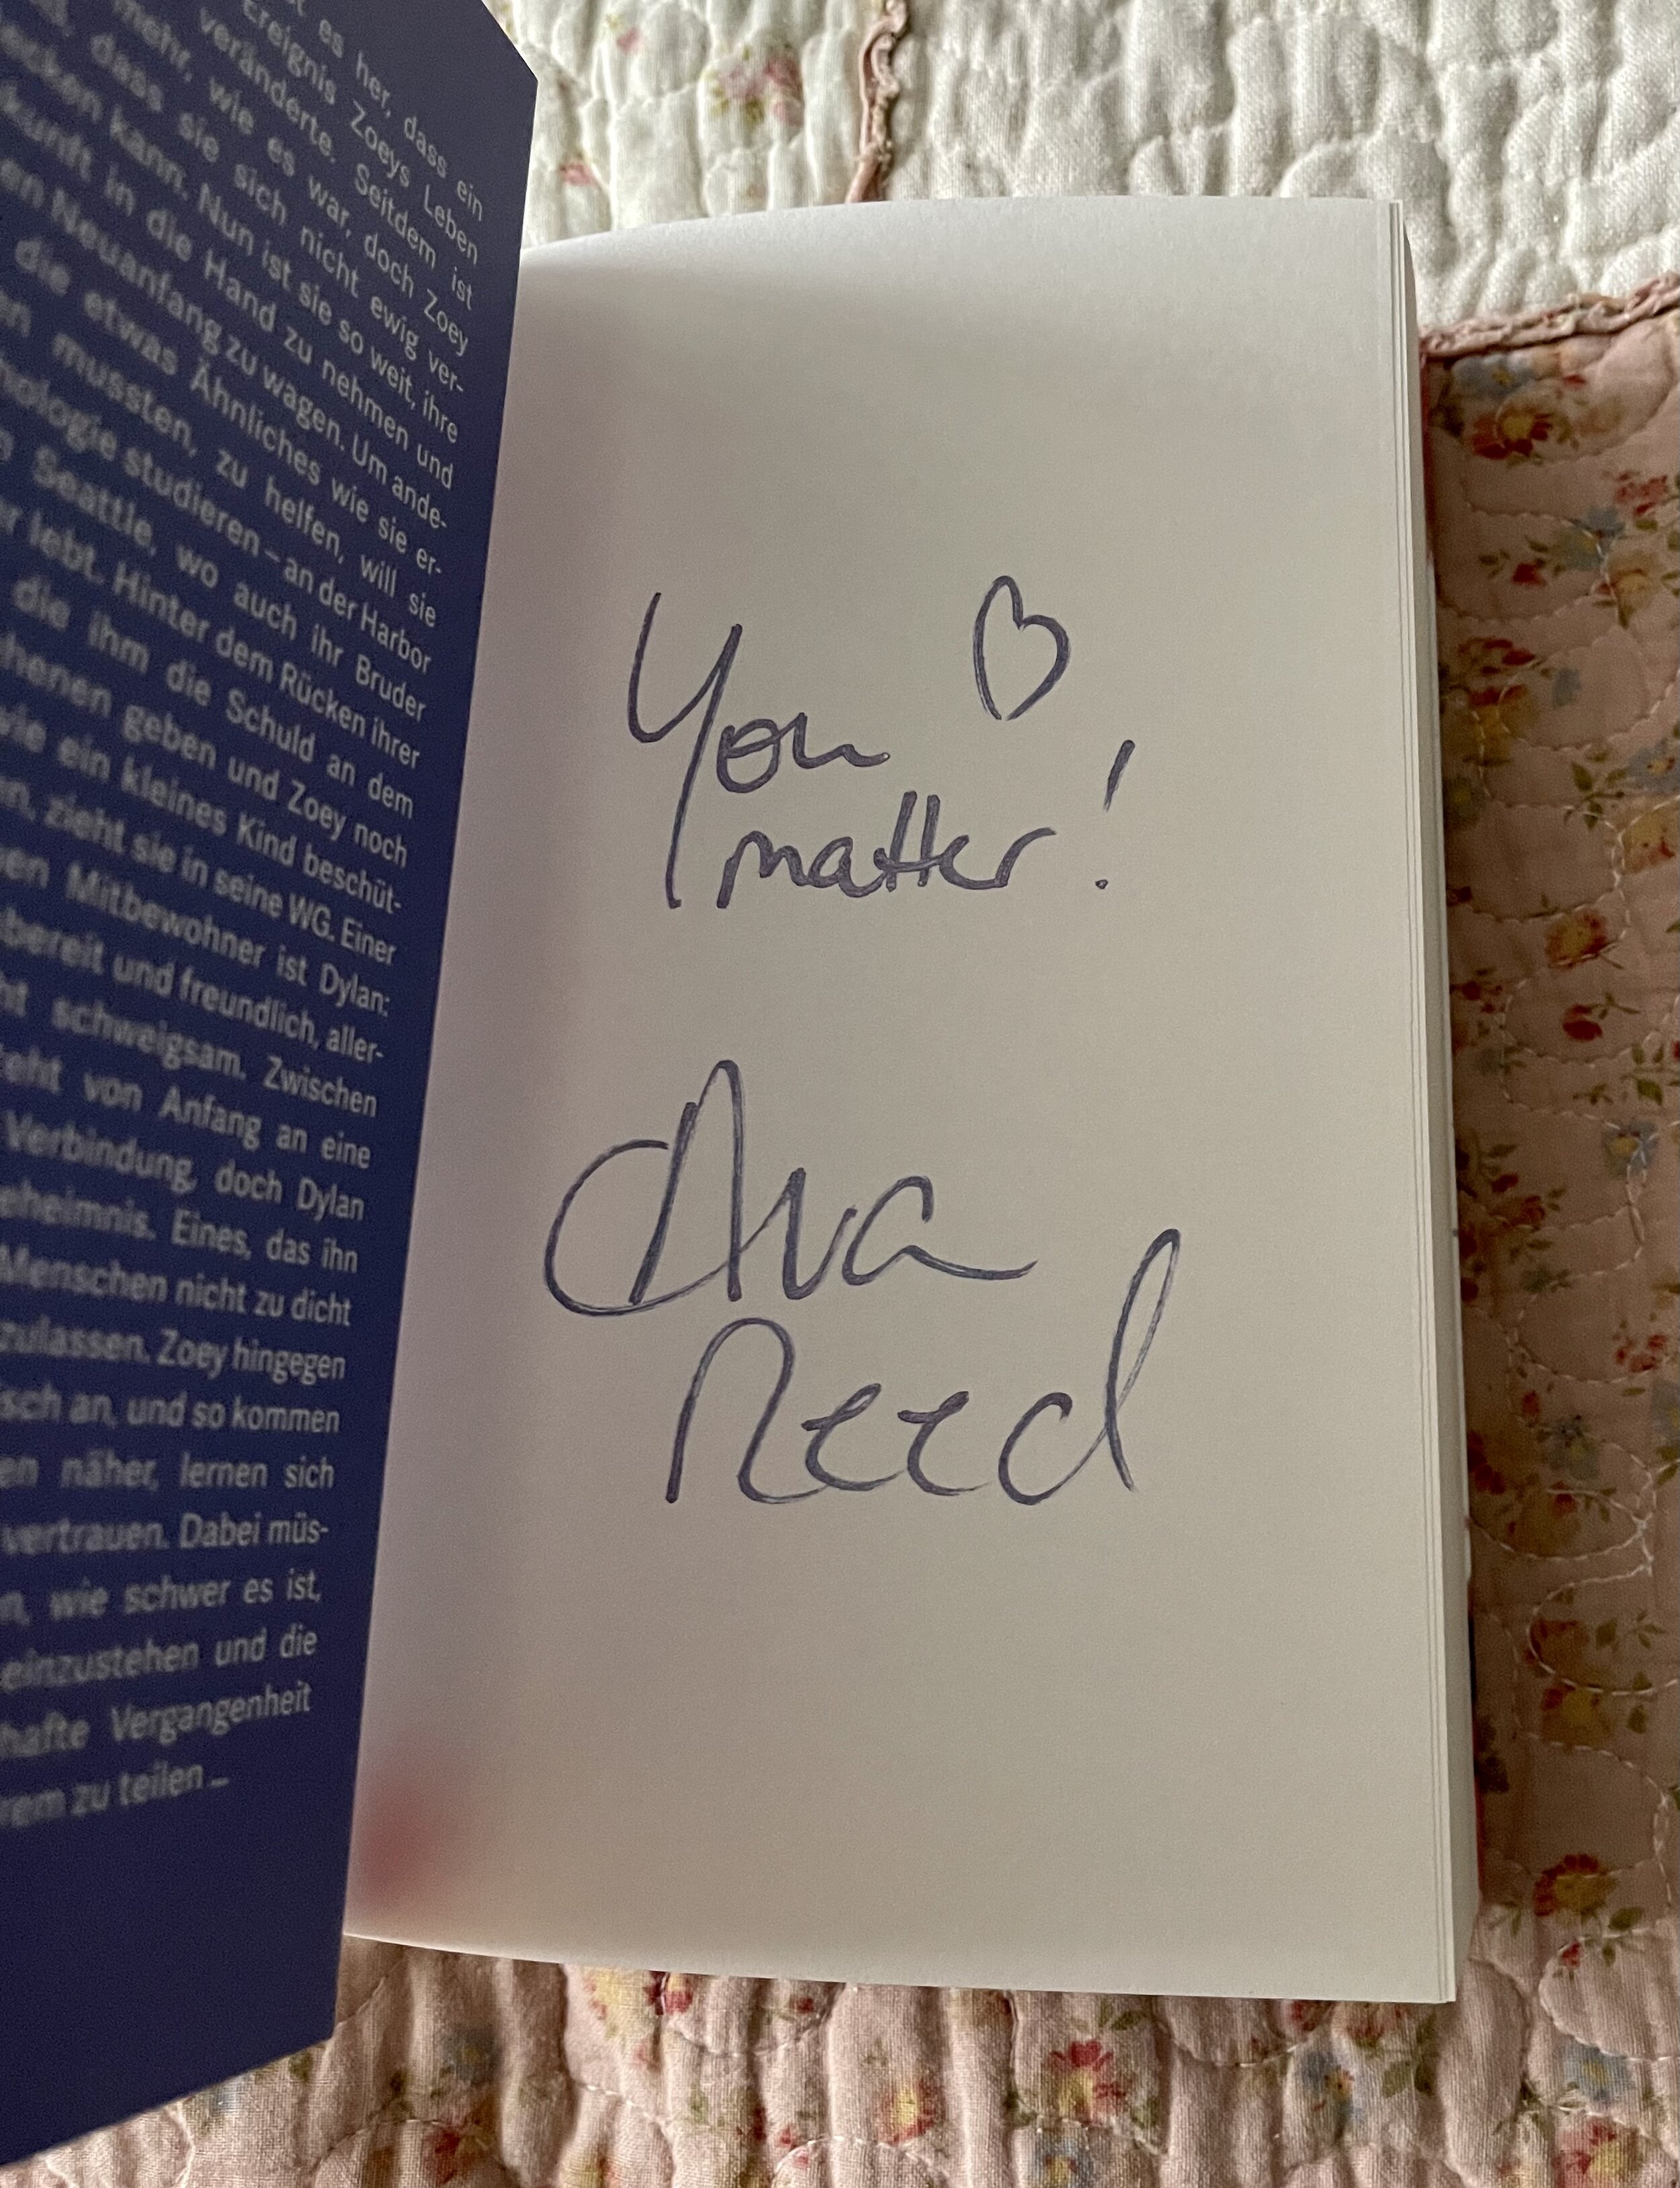 es her, dass ein
Ereignis Zoeys Leben
veränderte. Seitdem ist
mehr, wie es war, doch Zoey
dass sie sich nicht ewig ver-
kann. Nun ist sie so weit, ihre
in die Hand zu nehmen und
Neuanfang zu wagen. Um ande-
die etwas Ähnliches wie sie er-
mussten, zu helfen, will sie
studieren – an der Harbor
Seattle, wo auch ihr Bruder
lebt. Hinter dem Rücken ihrer
die ihm die Schuld an dem
geben und Zoey noch
wie ein kleines Kind beschüt-
zieht sie in seine WG. Einer
Mitbewohner ist Dylan:
und freundlich, aller-
schweigsam. Zwischen
von Anfang an eine
Verbindung, doch Dylan
Eines, das ihn
Menschen nicht zu dicht
Zoey hingegen
an, und so kommen
näher, lernen sich
vertrauen. Dabei müs-
wie schwer es ist,
einzustehen und die
Vergangenheit
zu teilen ...
You
matter!
Ava
Reed